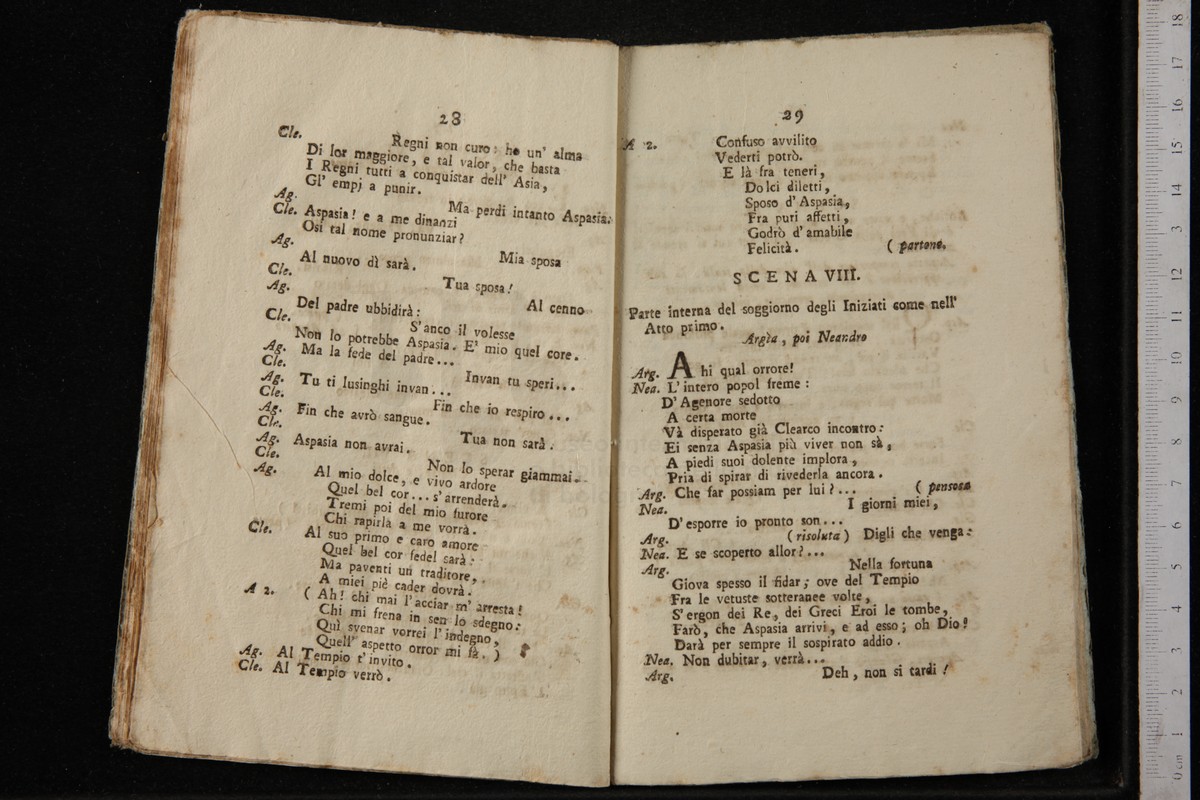 28
Cle. Regni non curo: ho un' alma
Di lor maggiore, e tal valor, che basta
I Regni tutti a conquistar dell' Asia,
Gl' empj a punir.
Ag. Ma perdi intanto Aspasia.
Cle. Aspasia! e a me dinanzi
Osi tal nome pronunziar?
Ag. Mia sposa
Al nuovo dì sarà.
Cle. Tua sposa!
Ag. Al cenno
Del padre ubbidirà:
Cle. S'anco il volesse
Non lo potrebbe Aspasia. E' mio quel core.
Ag. Ma la fede del padre...
Cle. Invan tu speri...
Ag. Tu ti lusinghi invan...
Cle. Fin che io respiro...
Ag. Fin che avrò sangue.
Cle. Tua non sarà.
Ag. Aspasia non avrai.
Cle. Non lo sperar giammai.
Ag. Al mio dolce, e vivo ardore
Quel bel cor... s'arrenderà.
Tremi poi del mio furore
Chi rapirla a me vorrà.
Cle. Al suo primo e caro amore
Quel bel cor fedel sarà:
Ma paventi un traditore,
A miei piè cader dovrà.
A 2. ( Ah! chi mai l'acciar m' arresta!
Chi mi frena in sen lo sdegno:
Quì svenar vorrei l'indegno,
Quell' aspetto orror mi fà. )
Ag. Al Tempio t'invito.
Cle. Al Tempio verrò.
29
A 2. Confuso avvilito
Vederti potrò.
E là fra teneri,
Dolci diletti,
Sposo d'Aspasia,
Fra puri affetti,
Godrò d'amabile
Felicità. ( partono.
SCENA VIII.
Parte interna del soggiorno degli Iniziati come nell'
Atto primo.
Argìa, poi Neandro
Arg. Ahi qual orrore!
Nea. L'intero popol freme:
D'Agenore sedotto
A certa morte
Và disperato già Clearco incontro:
Ei senza Aspasia più viver non sà,
A piedi suoi dolente implora,
Pria di spirar di rivederla ancora.
Arg. Che far possiam per lui?... ( pensosa
Nea. I giorni miei,
D'esporre io pronto son...
Arg. (risoluta) Digli che venga:
Nea. E se scoperto allor?...
Arg. Nella fortuna
Giova spesso il fidar; ove del Tempio
Fra le vetuste sotteranee volte,
S'ergon dei Re, dei Greci Eroi le tombe,
Farò, che Aspasia arrivi, e ad esso; oh Dio!
Darà per sempre il sospirato addio.
Nea. Non dubitar, verrà...
Arg. Deh, non si tardi!
0 cm 1 2 3 4 5 6 7 8 9 10 11 12 13 14 15 16 17 18